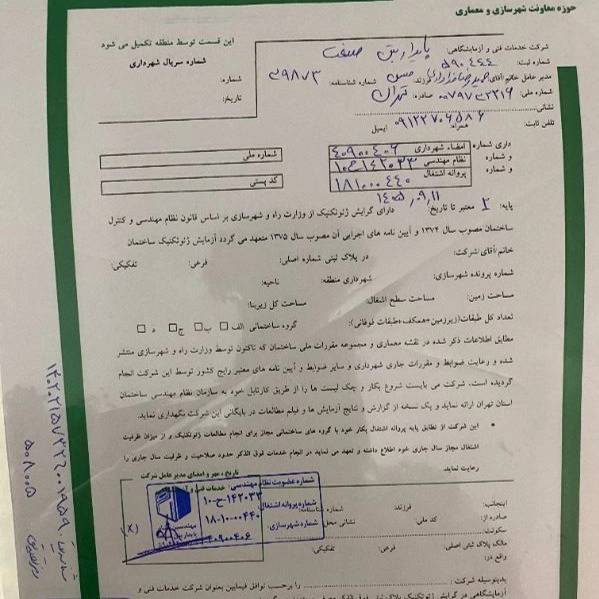 حوزه معاونت شهرسازی و معماری
این قسمت توسط منطقه تکمیل می شود
شماره سریال شهرداری
شماره:
تاریخ:
شرکت خدمات فنی و آزمایشگاهی: پایدار بتن صنعت
شماره ثبت: ۵۹۰۴۴۴
مدیر عامل خانم/آقای: فرزند: حسن شماره شناسنامه: ۲۹۸۷۳
شماره ملی: صادره: تهران
نشانی:
تلفن ثابت: همراه: ۰۹۱۲۲۷۰۶۵۸۶ ایمیل
داری شماره امضاء شهرداری ۴۰۹۰۰۴۰۶
و شماره نظام مهندسی
و شماره پروانه اشتغال ۱۸۱۰۰۰۴۴۰
شماره ملی
کد پستی
پایه: ۲ معتبر تا تاریخ: ۱۴۰۵/۰۹/۱۱ دارای گرایش ژئوتکنیک از وزارت راه و شهرسازی بر اساس قانون نظام مهندسی و کنترل
ساختمان مصوب سال ۱۳۷۴ و آیین نامه های اجرایی آن مصوب سال ۱۳۷۵ متعهد می گردد آزمایش ژئوتکنیک ساختمان
خانم/آقای/شرکت: در پلاک ثبتی شماره اصلی: فرعی: تفکیکی:
شماره پرونده شهرسازی: شهرداری منطقه: ناحیه:
مساحت زمین: مساحت سطح اشغال: مساحت کل زیربنا:
تعداد کل طبقات(زیرزمین+همکف+طبقات فوقانی): گروه ساختمانی الف□ ب□ ج□ د□
مطابق اطلاعات ذکر شده در نقشه معماری و مجموعه مقررات ملی ساختمان که تاکنون توسط وزارت راه و شهرسازی منتشر
شده و رعایت ضوابط و مقررات جاری شهرداری و سایر ضوابط و آیین نامه های معتبر رایج کشور توسط این شرکت انجام
گردیده است. شرکت می بایست شروع بکار و چک لیست ها را از طریق کارتابل خود به سازمان نظام مهندسی ساختمان
استان تهران ارائه نماید و یک نسخه از گزارش و نتایج آزمایش ها و فیلم مطالعات در بایگانی این شرکت نگهداری نماید.
• این شرکت از تطابق پایه پروانه اشتغال بکار خود با گروه های ساختمانی مجاز برای انجام مطالعات ژئوتکنیک و از میزان ظرفیت
اشتغال مجاز سال جاری خود اطلاع داشته و تعهد می نماید در انجام خدمات فوق الذکر حدود صلاحیت و ظرفیت سال جاری را
رعایت نماید.
تاریخ ، مهر و امضای مدیر عامل شرکت
شماره عضویت نظام مهندسی:
۱۰-ح-۱۴۲۰۳۳
شماره پروانه اشتغال:
۱۸-۱۰-۰۰۴۴۰
شماره شهرسازی:
۴۰۹۰۰۴۰۶
اینجانب: فرزند: شماره شناسنامه:
صادره از: کد ملی: نشانی محل
سکونت:
مالک پلاک ثبتی اصلی: فرعی: تفکیکی:
واقع در:
بدینوسیله شرکت : را برحسب توافق فیمابین بعنوان شرکت خدمات فنی و